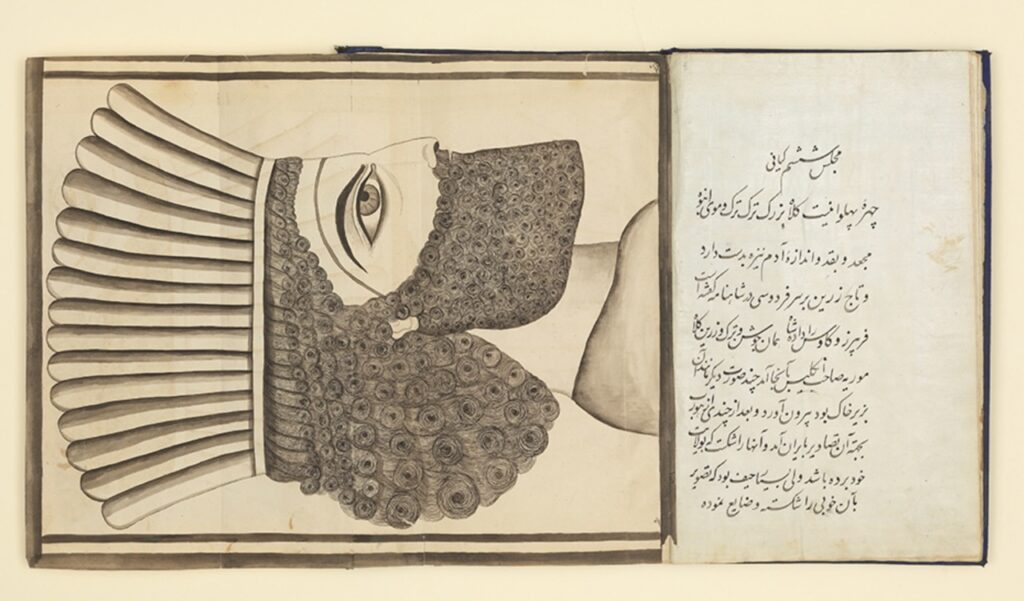 مجلس ششم کیانی
چهرهٔ پهلوانیست کلاه بزرگ ترک ترک و موی انبوه
مجعد و بقد و اندازهٔ آدم نیزه بدست دارد
و تاج زرین بر سر فردوسی در شاهنامه گفته است
فریبرز و کاوس را داد شاه همان جوشن و ترک و زرین کلاه
موریه صاحب انگلیس بآنجا آمد چند صورت دیگر
بزیر خاک بود بیرون آورد و بعد از چندی
بجهة آن تصاویر بایران آمد و آنها را شکست که بولایت
خود برده باشد ولی بسیار حیف بود که تصویر
بآن خوبی را شکسته و ضایع نموده